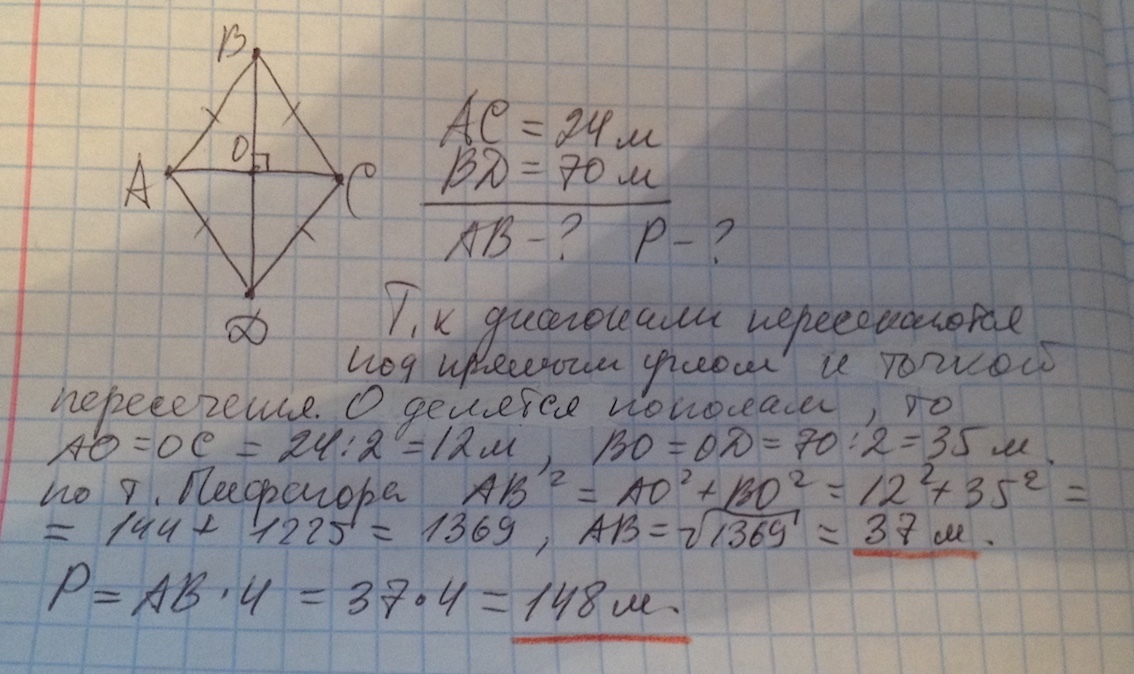 B
O
A
C
D
AC = 24 м
BD = 70 м
AB - ? P - ?
Т.к диагонали пересекаются
под прямым углом и точкой
пересечения. О делятся пополам, то
AO = OC = 24 : 2 = 12 м, BO = OD = 70 : 2 = 35 м.
по т. Пифагора AB² = AO² + BO² = 12² + 35² =
= 144 + 1225 = 1369, AB = √1369 = 37 м.
P = AB · 4 = 37 · 4 = 148 м.